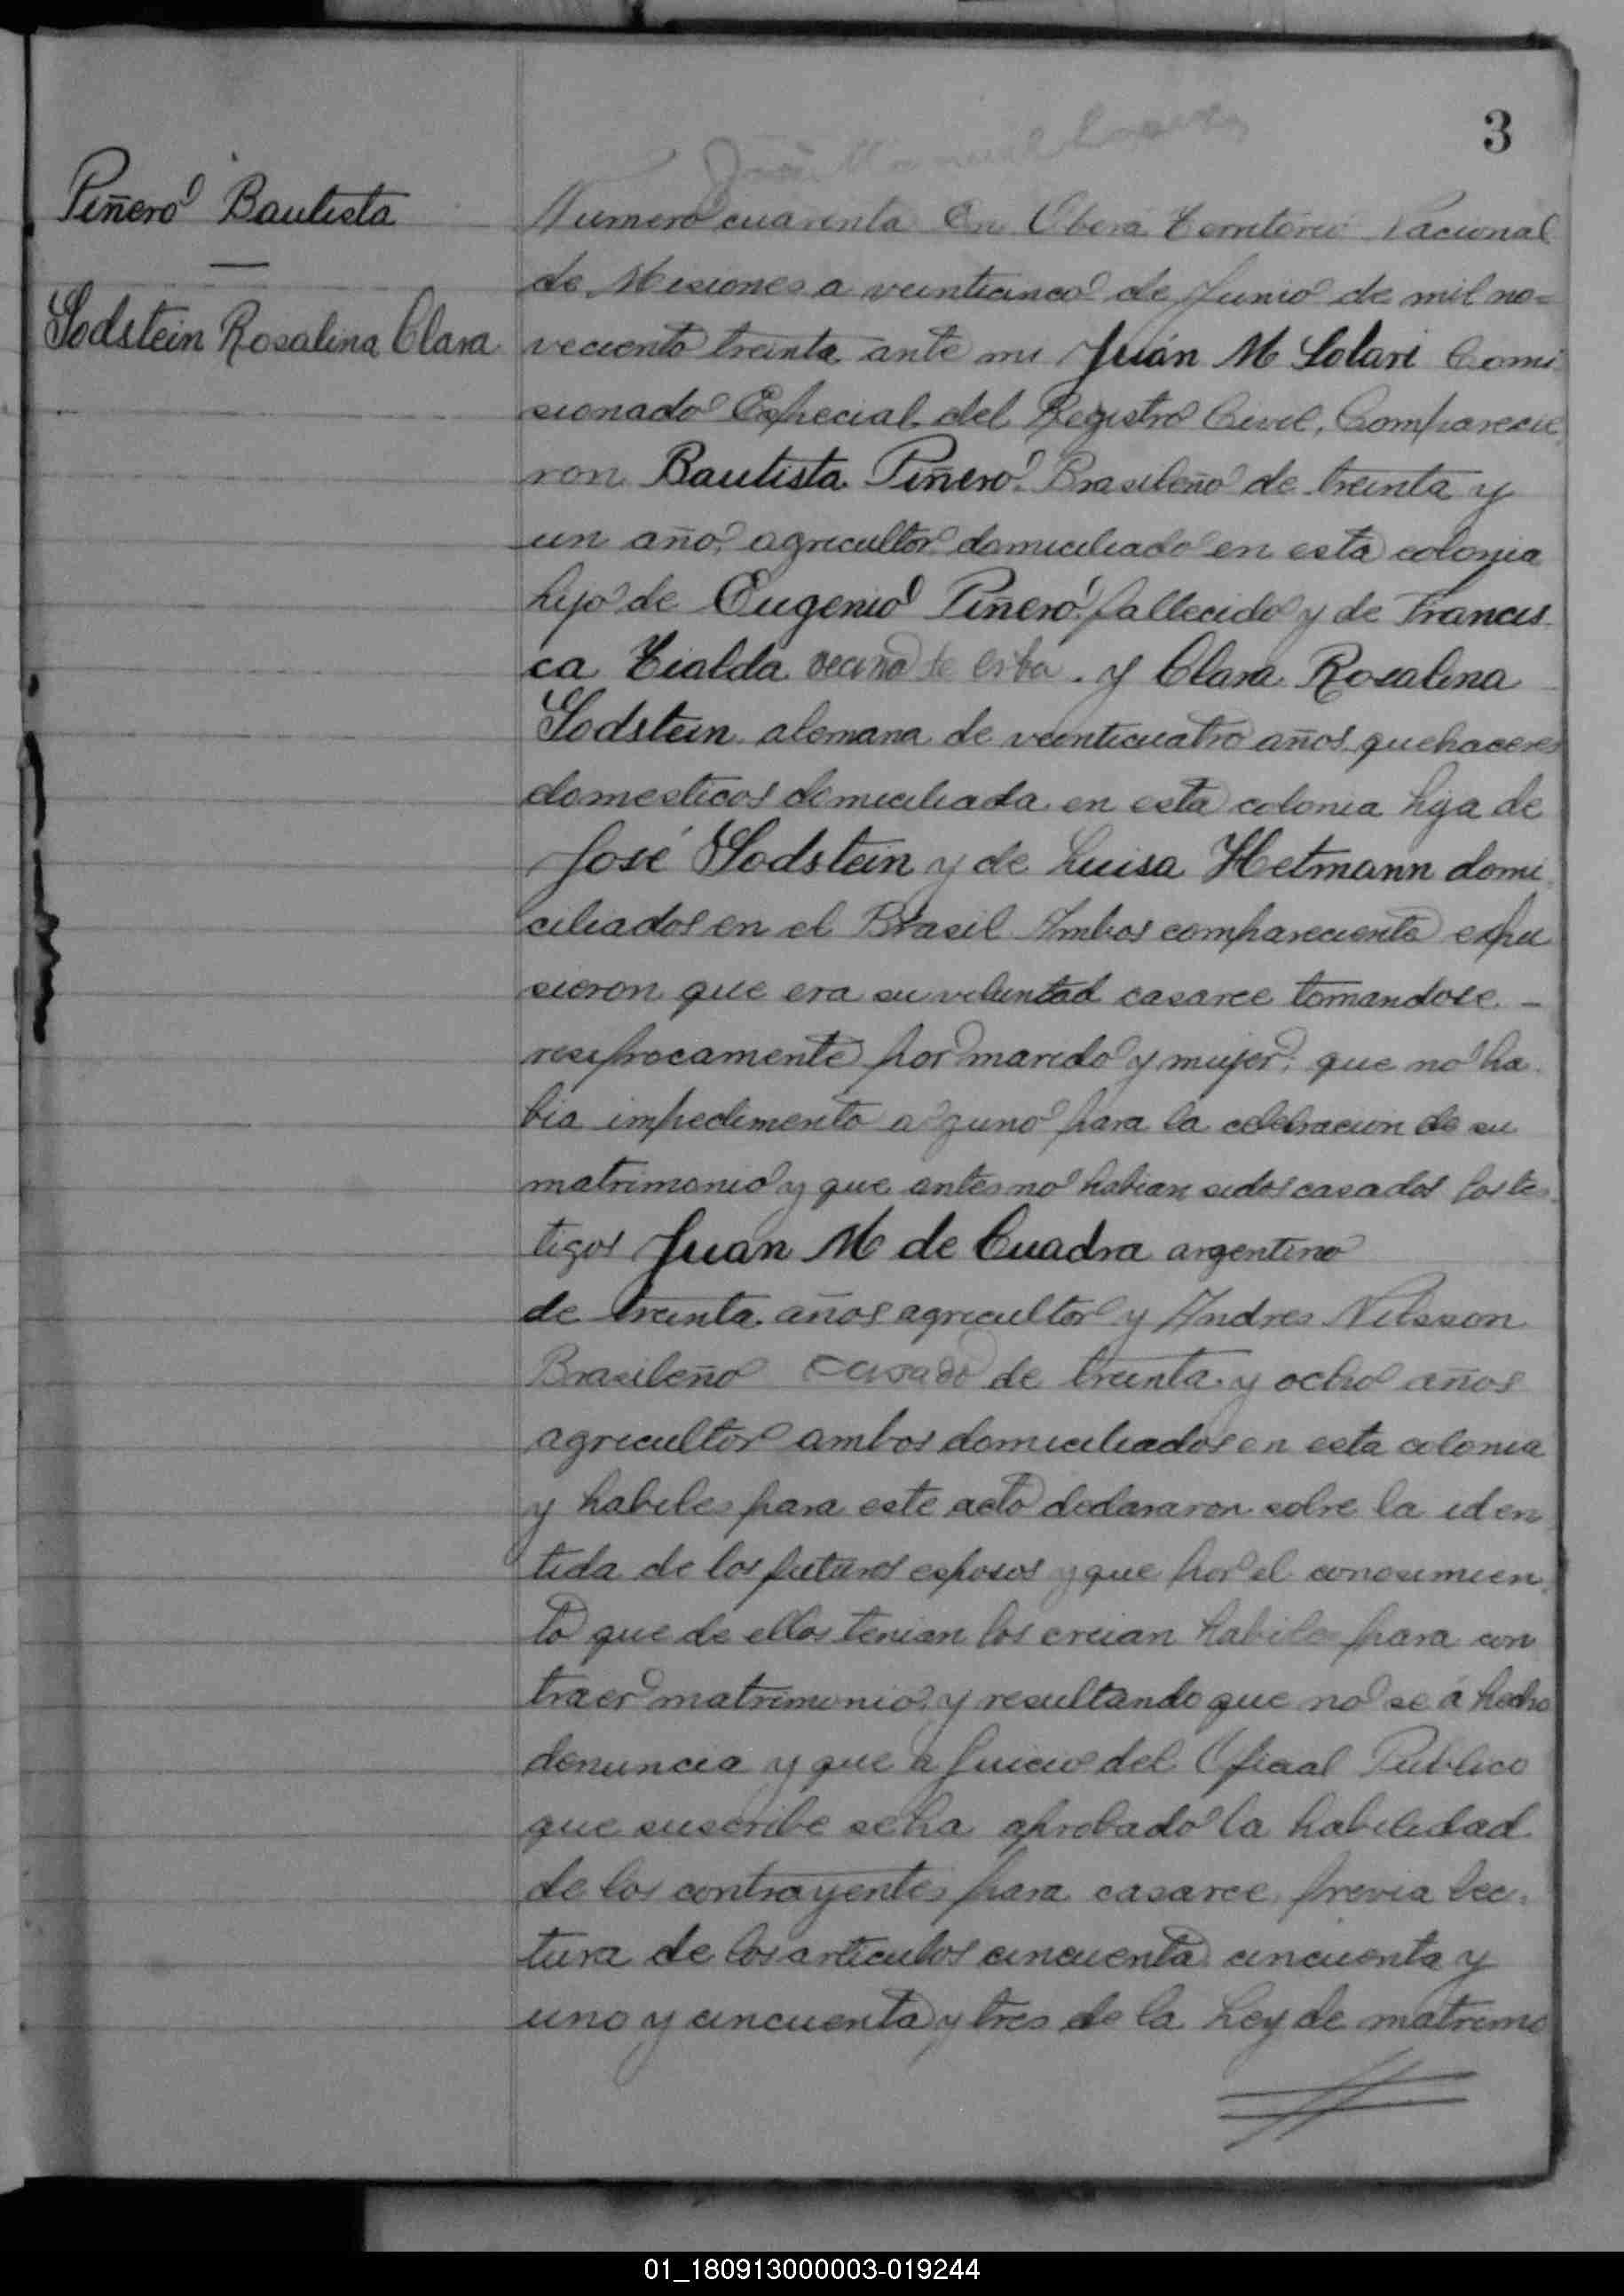 3
Piñero Bautista
Sodstein Rosalina Clara
Numero cuarenta En Oberá Territorio Nacional
de Misiones a veinticinco de Junio de mil no=
veciento treinta ante mi Juán M Solari Comi
sionado Especial del Registro Civil, Comparecie
ron Bautista Piñero Brasileño de treinta y
un año agricultor domiciliado en esta colonia
hijo de Eugenio Piñero fallecido y de Francis
ca Tialda vecina de esta . y Clara Rosalina
Sodstein alemana de veinticuatro años quehaceres
domesticos domiciliada en esta colonia hija de
José Sodstein y de Luisa Hetmann domi
ciliados en el Brasil Ambos compareciente expu
sieron que era su voluntad casarce tomandose -
resiprocamente por marido y mujer; que no ha
bia impedimento alguno para la celebracion de su
matrimonio y que antes no habian sidos casados los tes
tigos Juan M de Cuadra argentino
de treinta años agricultor y Andres Nilsson
Brasileño casado de treinta y ocho años
agricultor ambos domiciliados en esta colonia
y habiles para este acto declararon sobre la iden
tida de los futuros esposos y que por el conosimien
to que de ellos tenian los creian habiles para con
traer matrimonio, y resultando que no se á hecho
denuncia y que a Juicio del Oficial Publico
que suscribe se ha aprobado la habilidad
de los contrayentes para casarce previa lec
tura de los articulos cincuenta cincuenta y
uno y cincuenta y tres de la Ley de matrimo
01_180913000003-019244